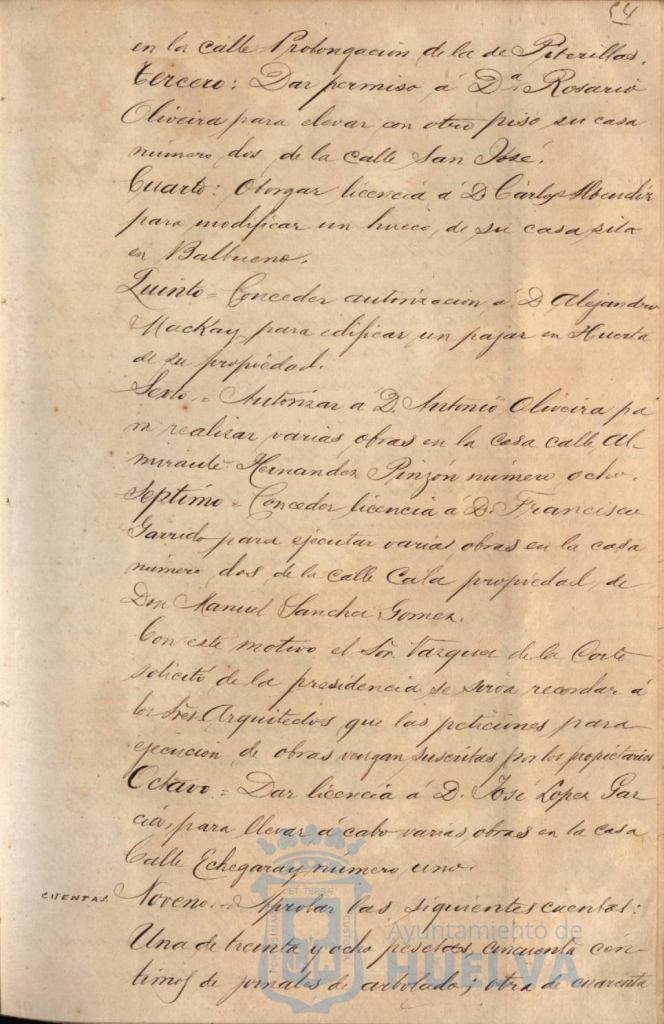 54
en la calle Prolongación de la de Piterillas.
Tercero: Dar permiso á Dª. Rosario
Oliveira para elevar con otro piso su casa
número dos de la calle San José.
Cuarto: Otorgar licencia á D Cárlos
para modificar un hueco, de su casa sita
en Balbueno.
Quinto = Conceder autorización á D Alejandro
MacKay, para edificar un pajar en Huerta
de su propiedad.
Sexto. = Autorizar á D. Antonio Oliveira pa
ra realizar varias obras en la casa calle Al-
mirante Hernandez Pinzón número ocho.
Septimo = Conceder licencia á D. Francisco
Garrido para ejecutar varias obras en la casa
número dos de la calle Cala propiedad de
Don Manuel Sancha Gomez.
Con este motivo el Sõr Vazquez de la Corte
solicitó de la presidencia se sirva recordar á
los Sres. Arquitectos que las peticiones para
ejecucion de obras vengan suscritas por los propietarios
Octavo = Dar licencia á D. José Lopez Gar-
cia, para llevar á cabo varias obras en la casa
Calle Echegaray número uno.
CUENTAS. Noveno. = Aprobar las siguientes cuentas:
Una de treinta y ocho pesetas cincuenta cén-
timos de jornales de arbolado; otra de cuarenta
Ayuntamiento de
HUELVA